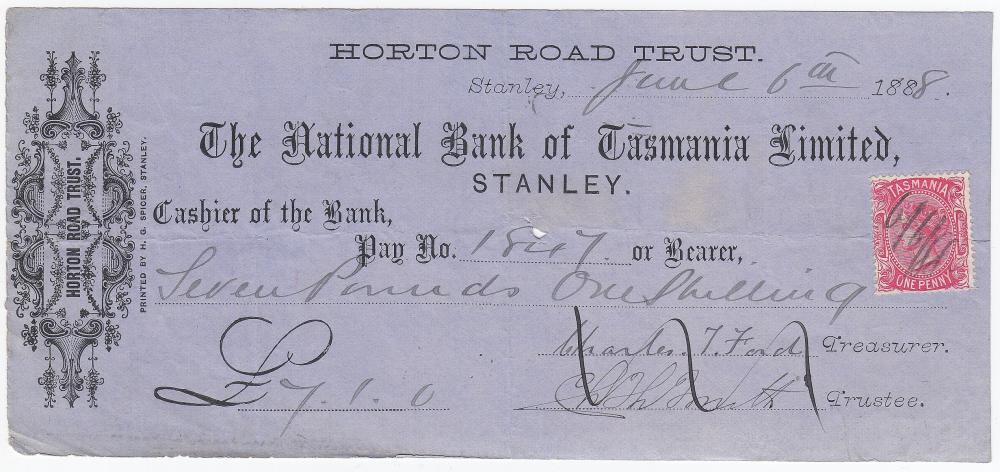 HORTON ROAD TRUST.
Stanley, June 6th 1888.
The National Bank of Tasmania Limited,
STANLEY.
Cashier of the Bank,
Pay No. 1847 or Bearer,
Seven Pounds One Shilling
£7.1.0
Charles. T. Ford Treasurer.
Smith Trustee.
HORTON ROAD TRUST.
PRINTED BY H. G. SPICER, STANLEY.
TASMANIA
ONE PENNY